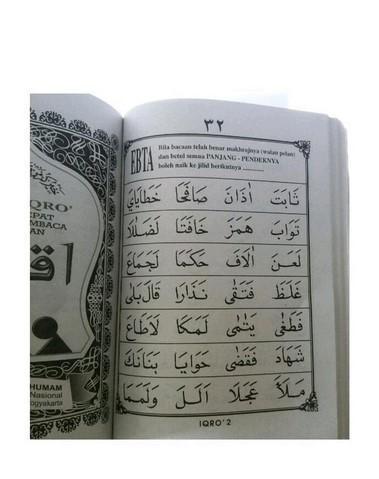 IQRO'
EPAT
MBACA
AN
HUMAM
Nasional
ogyakarta
٣٢
EBTA
Bila bacaan telah benar makhrajnya (walau pelan)
dan betul semua PANJANG - PENDEKNYA
boleh naik ke jilid berikutnya ............
ثَابَتَ اَذَانَ صَافَحَا خَطَايَايَ
تَوَابَ هَمَزَ خَافَتَا لَضَلَلَا
لَعَنَ اَلَافَ حَكَمَا لَجَمَاعَ
غَلَظَ فَتَقَى نَذَارَا قَالَ بَلَى
فَطَغَى يَتَمَى لَمَكَا لَاطَاعَ
شَهَادَ فَقَضَى حَوَايَا بَنَانَكَ
مَلَأَ عَجَلَا اَلَلَ وَلَمَمَا
IQRO' 2